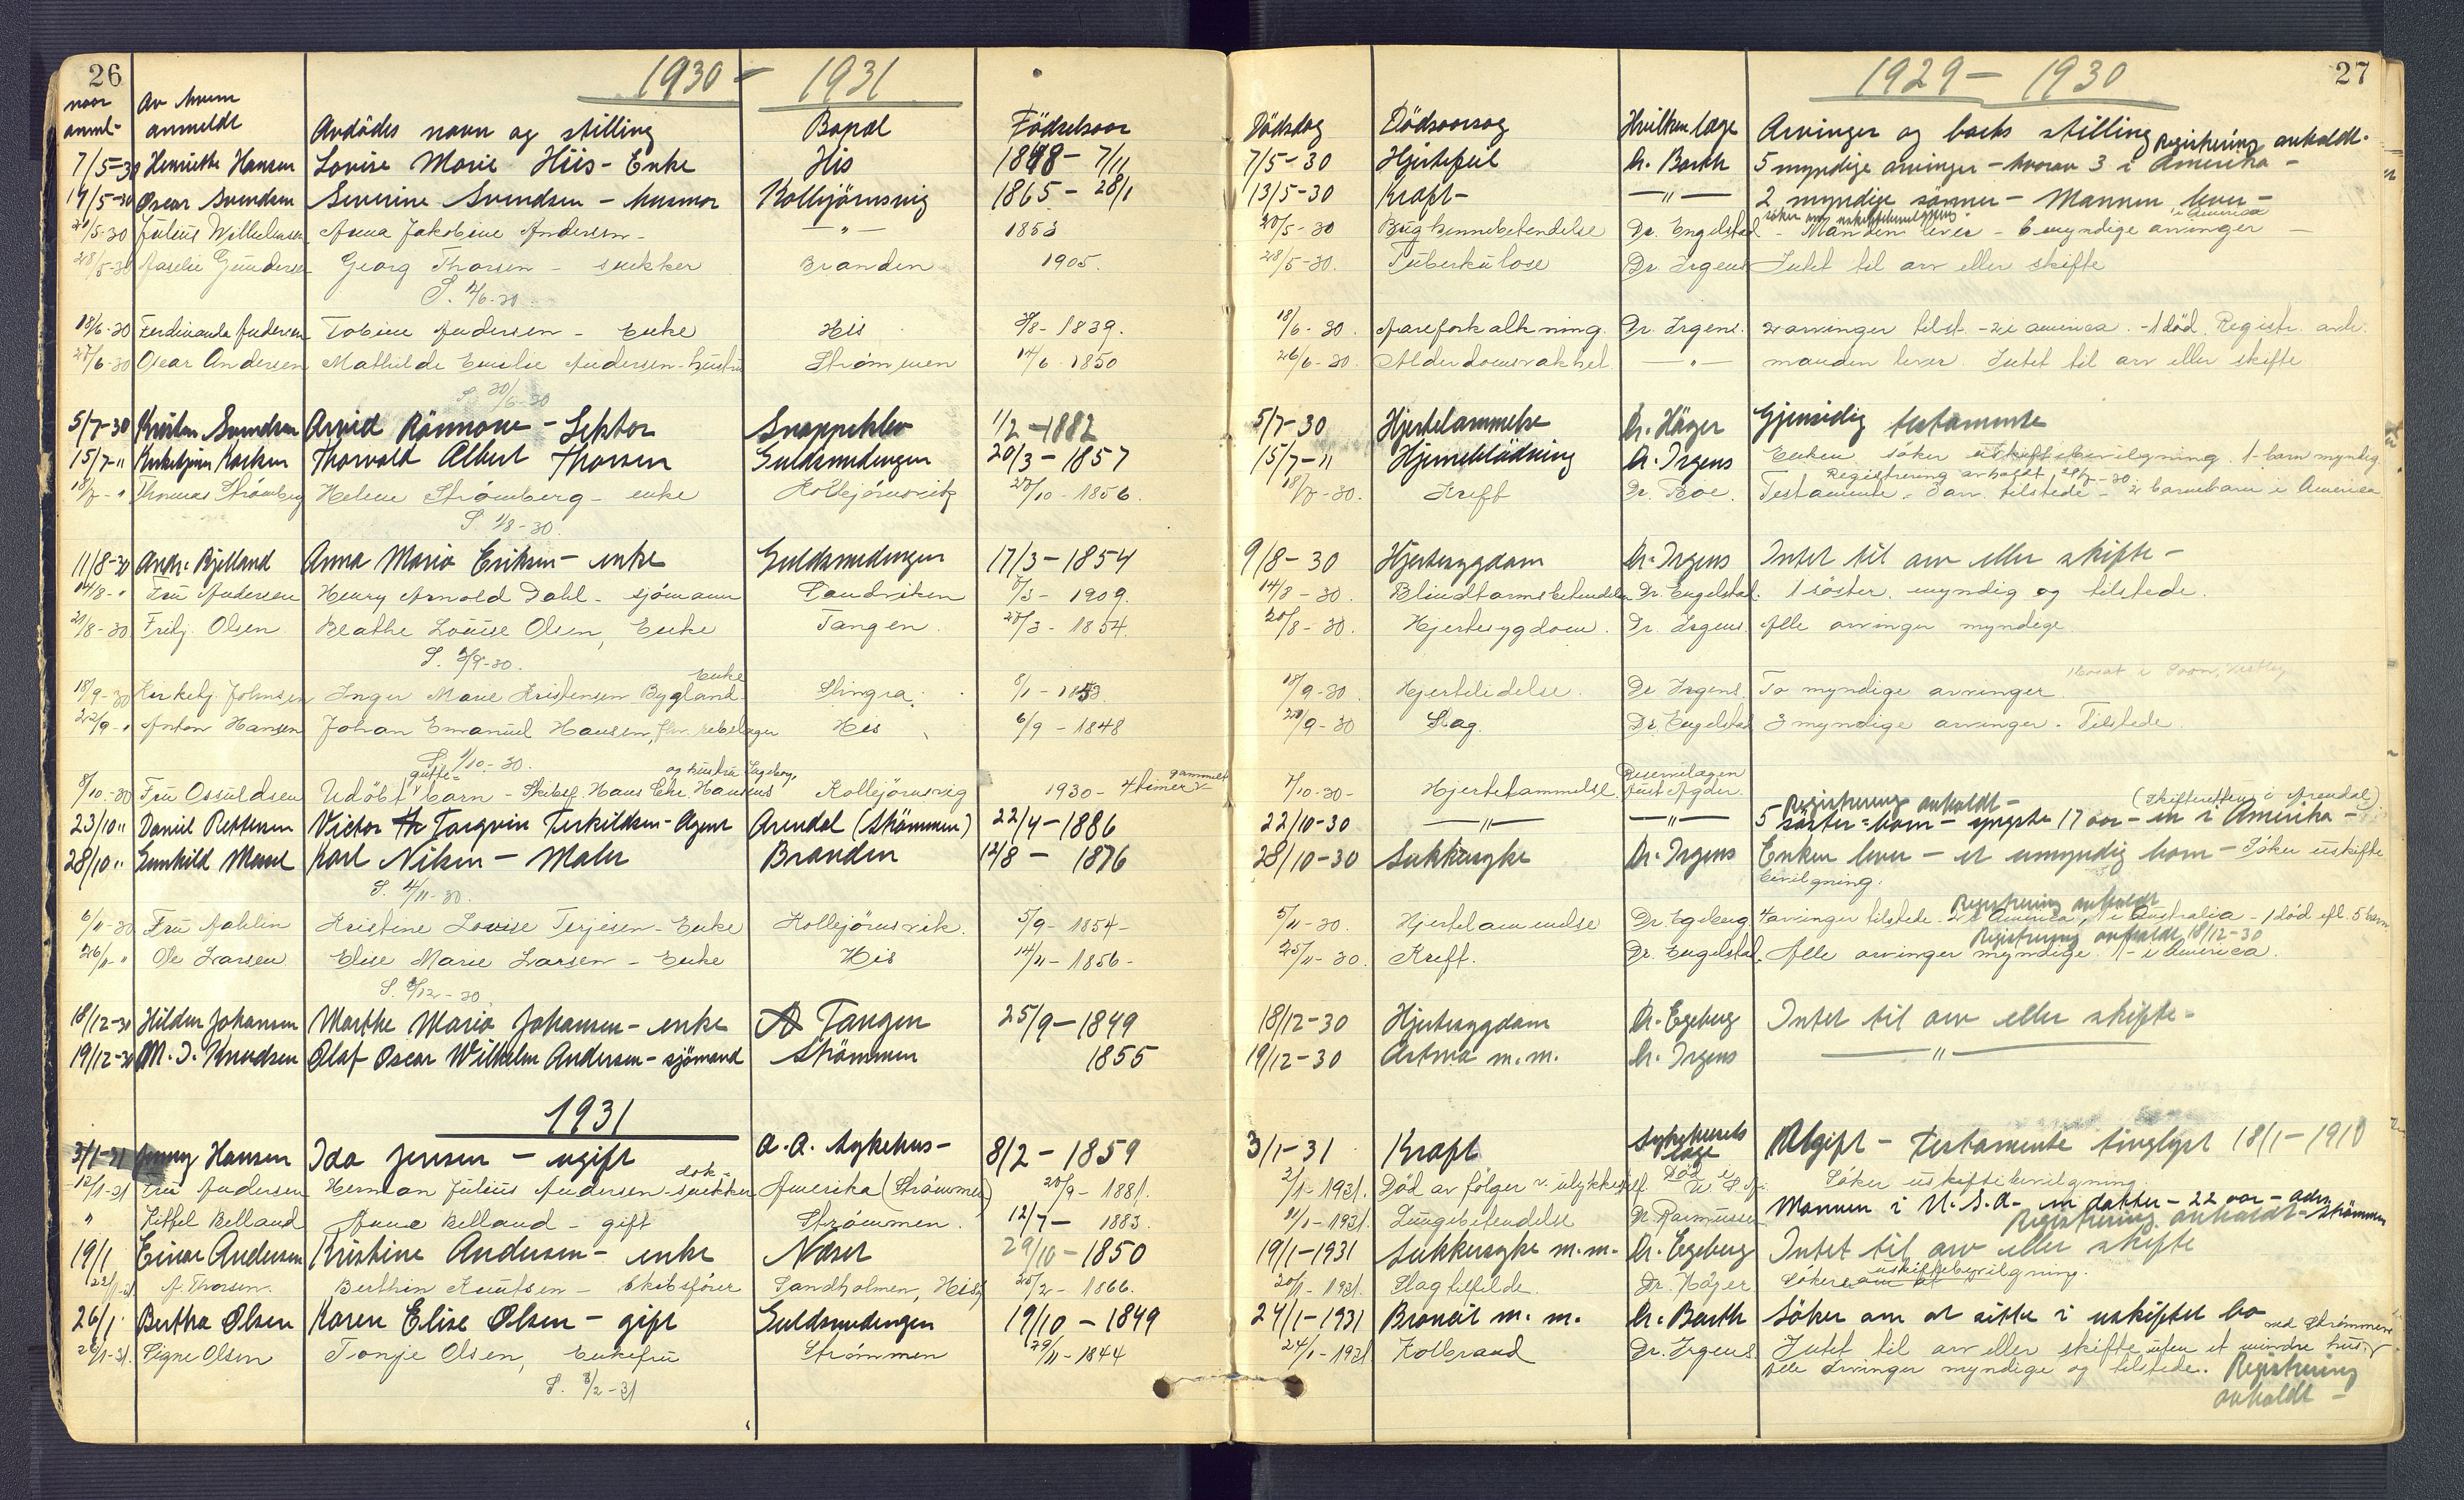 26
1930 - 1931
naar anml- Av hvem anmeldt Avdødes navn og stilling Bopæl Fødselsaar
7/5-30 Henriette Hansen Lovise Marie Hiis - Enke His 1848 - 7/11
19/5-30 Oscar Svendsen Severine Svendsen - husmor Kolbjörnsvig 1865 - 28/1
21/5-30 Julius Wilhelmsen Anna Jakobine Andersen - - " - 1853
28/5-30 Aaselie Gundersen Georg Thorsen - snekker Branden 1905.
S. 2/6-30
18/6-30 Ferdinanda Andersen Tobine Andersen - Enke His 1839.
27/6-30 Oscar Andersen Mathilde Emilie Andersen - hustru Strømmen 14/6 - 1850
S. 30/6-30
5/7-30 Kristen Svendsen Arvid Rönnove - Lektor Snøppeklev 1/2 - 1882
15/7-" Kirketjener Karlsen Thorvald Albert Thorsen Guldsmedengen 20/3 - 1857
18/7-" Thomas Strømberg Helene Strømberg - enke Kolbjörnsvik 27/10 - 1856.
S. 1/8-30.
11/8-30 Andr. Bjelland Anna Maria Eriksen - enke Guldsmedengen 17/3 - 1854
14/8-" Fru Andersen Henry Arnold Dahl - sjömann Sandviken 1909.
21/8-30 Fritj. Olsen Beathe Louise Olsen, Enke Tangen 1854.
S. 2/9-30.
18/9-30 Kirketj. Johnsen Inger Marie Kristensen Bygland - Enke Stingra. 8/1 - 1853.
22/9-" Anton Hansen Johan Emanuel Hansen, Hes 6/9 - 1848
S. 1/10-30.
8/10-30 Fru Osuldsen Udöbt gutte-barn - Skibsf. Hans Chr. Hansens og hustru Ingeborg, Kolbjörnsvig 1930 - 4 timer gammelt
23/10" Daniel Pettersen Victor Torgvin Terkildsen - Agent Arendal (Strömmen) 22/4 - 1886
28/10" Gunhild Karl Nilsen - Maler Branden 12/8 - 1876
S. 4/11-30.
6/11-30 Fru Dahlin Kristine Lovise Terjesen - Enke Kolbjörnsvik. 5/9 - 1854 -
26/11-" Ole Larsen Elise Marie Larsen - Enke His 14/11 - 1856 -
S. 8/12-30
18/12-30 Hildur Johansen Marthe Maria Johansen - enke Tangen 25/9 - 1849
19/12-30 M. I. Knudsen Olaf Oscar Wilhelm Andersen - sjömand Strömmen 1855
1931
3/1-31 Jenny Hansen Ida Jensen - ugift A. A. sykehus - 8/2 - 1859
12/1-31 Fru Andersen Herman Julius Andersen - snekker Amerika (Strömmen) 20/9 - 1881.
" Kittel Belland Anna Belland - gift Strømmen. 12/7 - 1883.
19/1 Einar Andersen Kristine Andersen - enke Næset 29/10 - 1850
22/1-31 A. Thorsen. Berthin Knutsen - Skibsfører Sandholmen, His 25/2 - 1866.
26/1 Bertha Olsen Karen Elise Olsen - gift Guldsmedengen 19/10 - 1849
26/1-31. Signe Olsen Tonje Olsen, Enkefru Strømmen 29/11 - 1844
S. 3/2-31
27
1929 - 1930
Dödsdag Dödsaarsag Hvilken læge Arvinger og boets stilling
7/5-30 Hjertefeil Dr. Barth 5 myndige arvinger - hvorav 3 i Amerika - Registrering avholdt.
13/5-30 Kræft - - " - 2 myndige sönner - Mannen lever -
20/5-30 Bughinnebetendelse Dr. Engelstad - Manden lever - 6 myndige arvinger i America -
28/5-30. Tuberkulose Dr. Irgens Intet til arv eller skifte
18/6-30. Aareforkalkning. Dr. Irgens. 2 arvinger tilst. - 2 i america. - 1 död. Registr. avh.
26/6-30. Alderdomsvakhet - " - manden lever. Intet til arv eller skifte
5/7-30 Hjertelammelse Dr. Höyer Gjensidig testamente
15/7-" Hjerneblödning Dr. Irgens Enken söker uskiftebevilgning. 1 barn myndig
18/7-30. Kreft Dr. Boe. Testamente. 3 arv. tilstede - 2 barnebarn i America Registrering avholdt 28/7-30
9/8-30 Hjertesygdom Dr. Irgens Intet til arv eller skifte -
14/8-30. Blindtarmsbetendelse Dr. Engelstad. 1 söster, myndig og tilstede.
20/8-30. Hjertesygdom. Dr. Irgens Alle arvinger myndige.
18/9-30. Hjertelidelse. Dr Irgens To myndige arvinger.
20/9-30 Slag. Dr. Engelstad 3 myndige arvinger. Tilstede.
7/10-30 - Hjertelammelse Reservelægen Aust Agder.
22/10-30 - " - - " - 5 söster-barn - yngste 17 aar - en i Amerika - Registrering avholdt - (Skifteretten i Arendal)
28/10-30 Sukkersyke Dr. Irgens Enken lever - et umyndig barn - Söker uskifte
bevilgning.
5/11-30. Hjertelammelse Dr. Egeberg 4 arvinger tilstede. 2 i America, 1 i Australia - 1 död eft. 5 barn Registrering avholdt
25/11-30. Kreft. Dr. Engelstad. Alle arvinger myndige. 1 - i America. Registrering avholdt 18/12-30
18/12-30 Hjertesygdom Dr. Egeberg Intet til arv eller skifte -
19/12-30 Astma m.m. Dr. Irgens - " -
3/1-31 Kræft Sykehusets læge Ugift - Testamente tinglyst 18/1-1910
2/1-1931. Död av følger v. ulykkestilf. Död i U.S.A. Söker uskiftebevilgning.
11/1-1931. Lungebetendelse Dr Rasmussen Mannen i U.S.A - en datter - 22 aar - adr. Strömmen Registrering avholdt -
19/1-1931 Sukkersyke m.m. Dr. Egeberg Intet til arv eller skifte
20/1-1931. Slagtilfelde. Dr. Høyer. Söker uskiftebevilgning.
24/1-1931 Broncit m.m. Dr. Barth Söker om at sitte i uskiftet bo
24/1-1931 Kolbrand Dr. Irgens Intet til arv eller skifte uten et mindre hus ved Strømmen.
Alle arvinger myndige og tilstede. Registrering
avholdt -